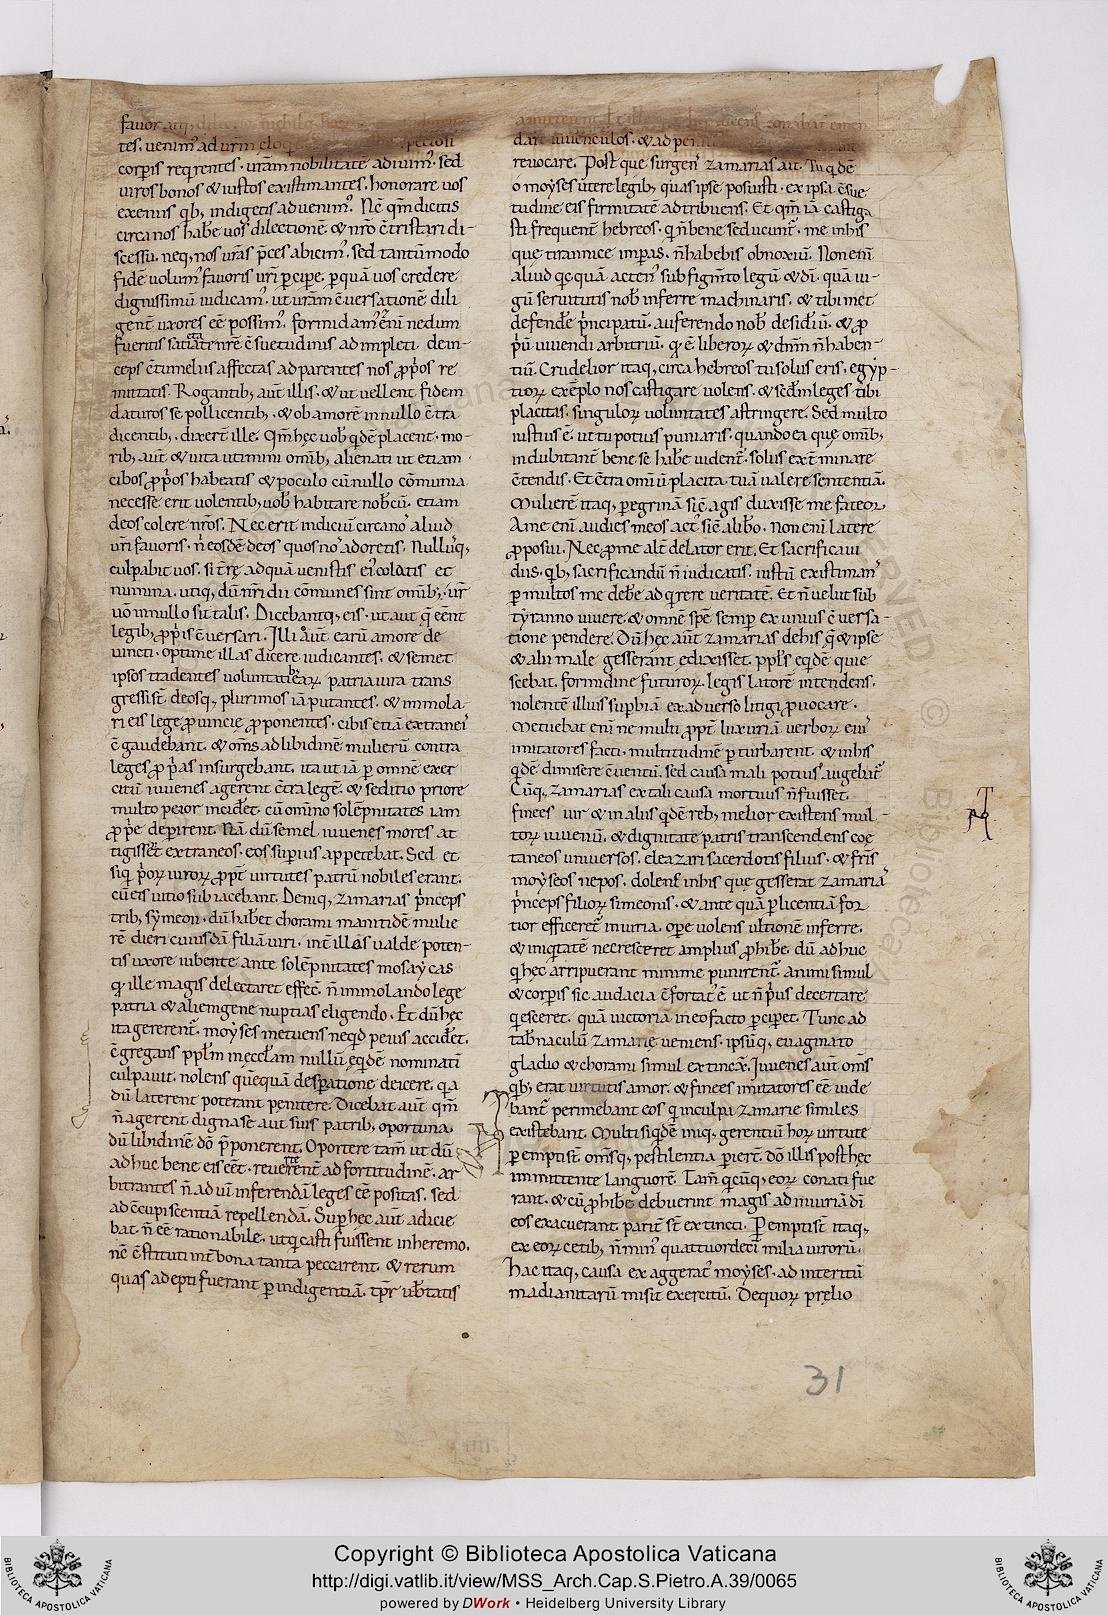 favor
tes. venim᷒ ad urm̄ eloq
corpis reqrentes. urām nobilitatē adiuim᷒. sed
uiros bonos & iustos existimantes. honorare uos
exenus qb; indigetis aduenim᷒. Nē qm̄ dicitis
circa nos hab̄e uos dilectionē. & nr̄o c̄tristari di-
scessu. neq; nos ur̄as p̄ces abicim᷒. sed tantūmodo
fidē uolum᷒ fauoris ur̄i ꝑcipe. ꝑ quā uos credere
dignissimū iudicam᷒. ut urām c̄uersationē dili
gent̄ uxores eē possim᷒. formidam᷒ eni nedum
fueritis satiati nr̄ē c̄suetudinis adimpleti. dein-
ceps c̄tumelus affectas ad parentes nos ꝓp̄os re
mittatis. Rogantib; aūt illis. & ut uellent fidem
daturos se pollicentib; & ob amorē in nullo c̄tra
dicentib;. dixer̄t ille. Qm̄ hęc uob̄ qdē placent. mo-
rib; aūt & uita utimini omīb; alienati ut etiam
cibos ꝓp̄os habeatis & poculo cū nullo cōmunia
necesse erit uolentib; uob̄ habitare nob̄cū. etiam
deos colere nr̄os. Nec erit indiciū circa no᷒ aliud
ur̄i fauoris. n̄ eosdē deos quos no᷒ adoretis. Nullus᷒q;
culpabit uos. si t̄rę ad quā uenistis ei᷒ colatis et
numina. utiq; dū nr̄i dii cōmunes sint omīb; ur̄
uō in nullo sit talis. Dicebantq; eis. ut aut q̄ eēnt
legib; ꝓp̄is c̄uersari. Illi aūt earū amore de
uincti. optime illas dicere iudicantes. & semet
ipsos tradentes uoluntatib; earꝝ patria iura trans
gressi st̄. deosq; plurimos iā putantes. & immola-
ri eis lege ꝓuincię ꝓponentes. cibis etiā extranei᷒
c̄gaudebant. & om̄s ad libidinē mulierū contra
leges ꝓp̄as insurgebant. ita ut iā ꝑ omnē exer
citū iuuenes agerent c̄tra legē. & seditio priore
multo peior incider̄et. cū om̄ino solēpnitates iam
ꝓp̄e deperirent. Nā dū semel iuuenes mores at
tigissēt extraneos. eos suꝑius appetebat. Sed et
siq p̄orꝝ uirorꝝ ꝓpt̄ uirtutes patrū nobiles erant.
cū eis uitio subiacebant. Deniq; zimarias p̄nceps
trib; symeon. dū hab̄et chorami manitidē mulie
rē dieri cuiusdā filiā uiri. int̄ illos ualde poten-
tis uxore iubente ante solēpnitates mosaycas
qđ ille magis delectaret effect̄. n̄ immolando lege
patria & aliemgene nuptias eligendo. Et dū hęc
ita gererent᷒. moyses metuens neqd peius accider̄et.
c̄gregans pplm̄ in ęccl̄am nullū ęqdē nominatī
culpauit. nolens quēquā desperatione deicere. q a
dū laterent poterant penitere. Dicebat aūt qm̄
n̄ agerent digna se aut suis patrib; oportuna.
dū libidinē dō p̄ponerent. Oportere tam̄ ut dū
adhuc bene eis eēt. reuerterent᷒ ad fortitudinē. ar
bitrantes n̄ ad uī inferendā leges eē positas. sed
ad c̄cupiscentiā repellendā. Super hęc aūt adicie
bat. n̄ eē rationabile. ut q̇ casti fuissent in heremo.
nē c̄stituti int̄ bona tanta peccarent. & rerum
quas adepti fuerant ꝑ indigentiā. tp̄r ub̄tatis
dare iuuenculos. & ad peni
reuocare. Post que surgens zamarias ait. Tu qdē
o moyses utere legib; quas ipse posuisti. ex ipsa c̄sue
tudine eis firmitatē adtribuens. Et qm̄ iā castiga
sti frequent̄ hebreos. qn̄ bene seducunt᷒. me in his
que tirannice imperas. n̄ habebis obnoxiū. Non eni
aliud qcquā acten᷒ sub figm̄to legū & dī. quā ui-
gū seruitutis nob̄ inferre machinaris. & tibimet
defendēe p̄ncipatū. auferendo nob̄ desidiū. & ꝓ
p̄u uiuendi arbitriū. q̇ ē liberorꝝ & dn̄m n̄ haben-
tiū. Crudelior itaq; circa hebreos tu solus eris. egyp-
tiorꝝ exēplo nos castigare uolens. & sedm̄ leges tibi
placitas. singulorꝝ uoluntates astringere. Sed multo
iustius ē. ut tu potius puniaris. quando ea que om̄ib;
indubitant̄ bene se hab̄e uident᷒. solus ext̄minare
c̄tendis. Et c̄tra om̄iū placita. tuā ualere sententiā.
Mulierē itaq; ꝑegrinā sič agis duxisse me fateor.
A me eni audies meos act᷒ sič alibo. Non eni latere
ꝓposui. Nec ꝓ me alt̄ delator erit. Et sacrificaui
diis. qb; sacrificandū n̄ iudicatis. iustū existimans
ꝑ multos me debēe adqrere ueritatē. Et n̄ uelut sub
tyranno uiuere. & omnē spē semꝑ ex unius c̄uersa-
tione pendere. Dū hęc aūt zamarias de his q̄ & ipse
& alii male gesserant edixisset. ppl̄s eqdē quie
scebat. formidine futurorꝝ. legis latorē intendens.
nolentē illius supbiā ex aduerso litigi ꝓuocare.
Metuebat eni ne multi ꝓpt̄ luxuriā uerborꝝ ei᷒
imitatores facti. multitudinē ꝑturbarent. & in his
qdē dimisere c̄uentū. sed causa mali potius augebat᷒.
Cūq; zamarias ex tali causa mortuus n̄ fuisset.
finees uir & in aliis qdē reb; melior existens mul-
torꝝ iuuenū. & dignitate patris transcendens coę
taneos uniuersos. eleazari sacerdotis filius. & fr̄is
moyseos nepos. dolens in his que gesserat zamaria᷒
p̄nceps filiorꝝ simeonis. & ante quā ꝑ licentiā for
tior efficeret᷒ iniuria. ope uolens ultionē inferre.
& iniqtatē ne cresceret amplius ꝓhib̄e. dū adhuc
q̇ hęc arripuerant minime punirent᷒. animi simul
& corpis sic audacia c̄fortat᷒ ē. ut n̄ p̄us decertare
qesceret. quā uictoria in eo facto ꝑciper̄et. Tunc ad
tab̄naculū zamarie ueniens. ipsūq; euaginato
gladio & chorami simul extinex̄. Iuuenes aūt om̄s
qb; erat uirtutis amor. & finees imitatores eē uide
bant᷒ perimebant eos q in culpa zamarie similes
existebant. Multi siqdē iniq; gerentiū horꝝ uirtute
ꝑempti st̄. om̄sq; pestilentia ꝑier̄t. dō illis post hęc
immittente languorē. Tam̄ qcūq; eorꝝ conati fue
rant. & cū ꝓhib̄e debuerint magis ad iniuriā dī
eos exacuerant. parit̄ st̄ extincti. Ꝑempti st̄ itaq;
ex eorꝝ cetib; n̄ min᷒ quattuordeci milia uirorū.
Hac itaq; causa exaggerat᷒ moyses. ad interitū
madianitarū misit exercitū. De quorꝝ prelio
31
Copyright © Biblioteca Apostolica Vaticana
http://digi.vatlib.it/view/MSS_Arch.Cap.S.Pietro.A.39/0065
powered by DWork • Heidelberg University Library
BIBLIOTECA APOSTOLICA VATICANA
BIBLIOTECA APOSTOLICA VATICANA